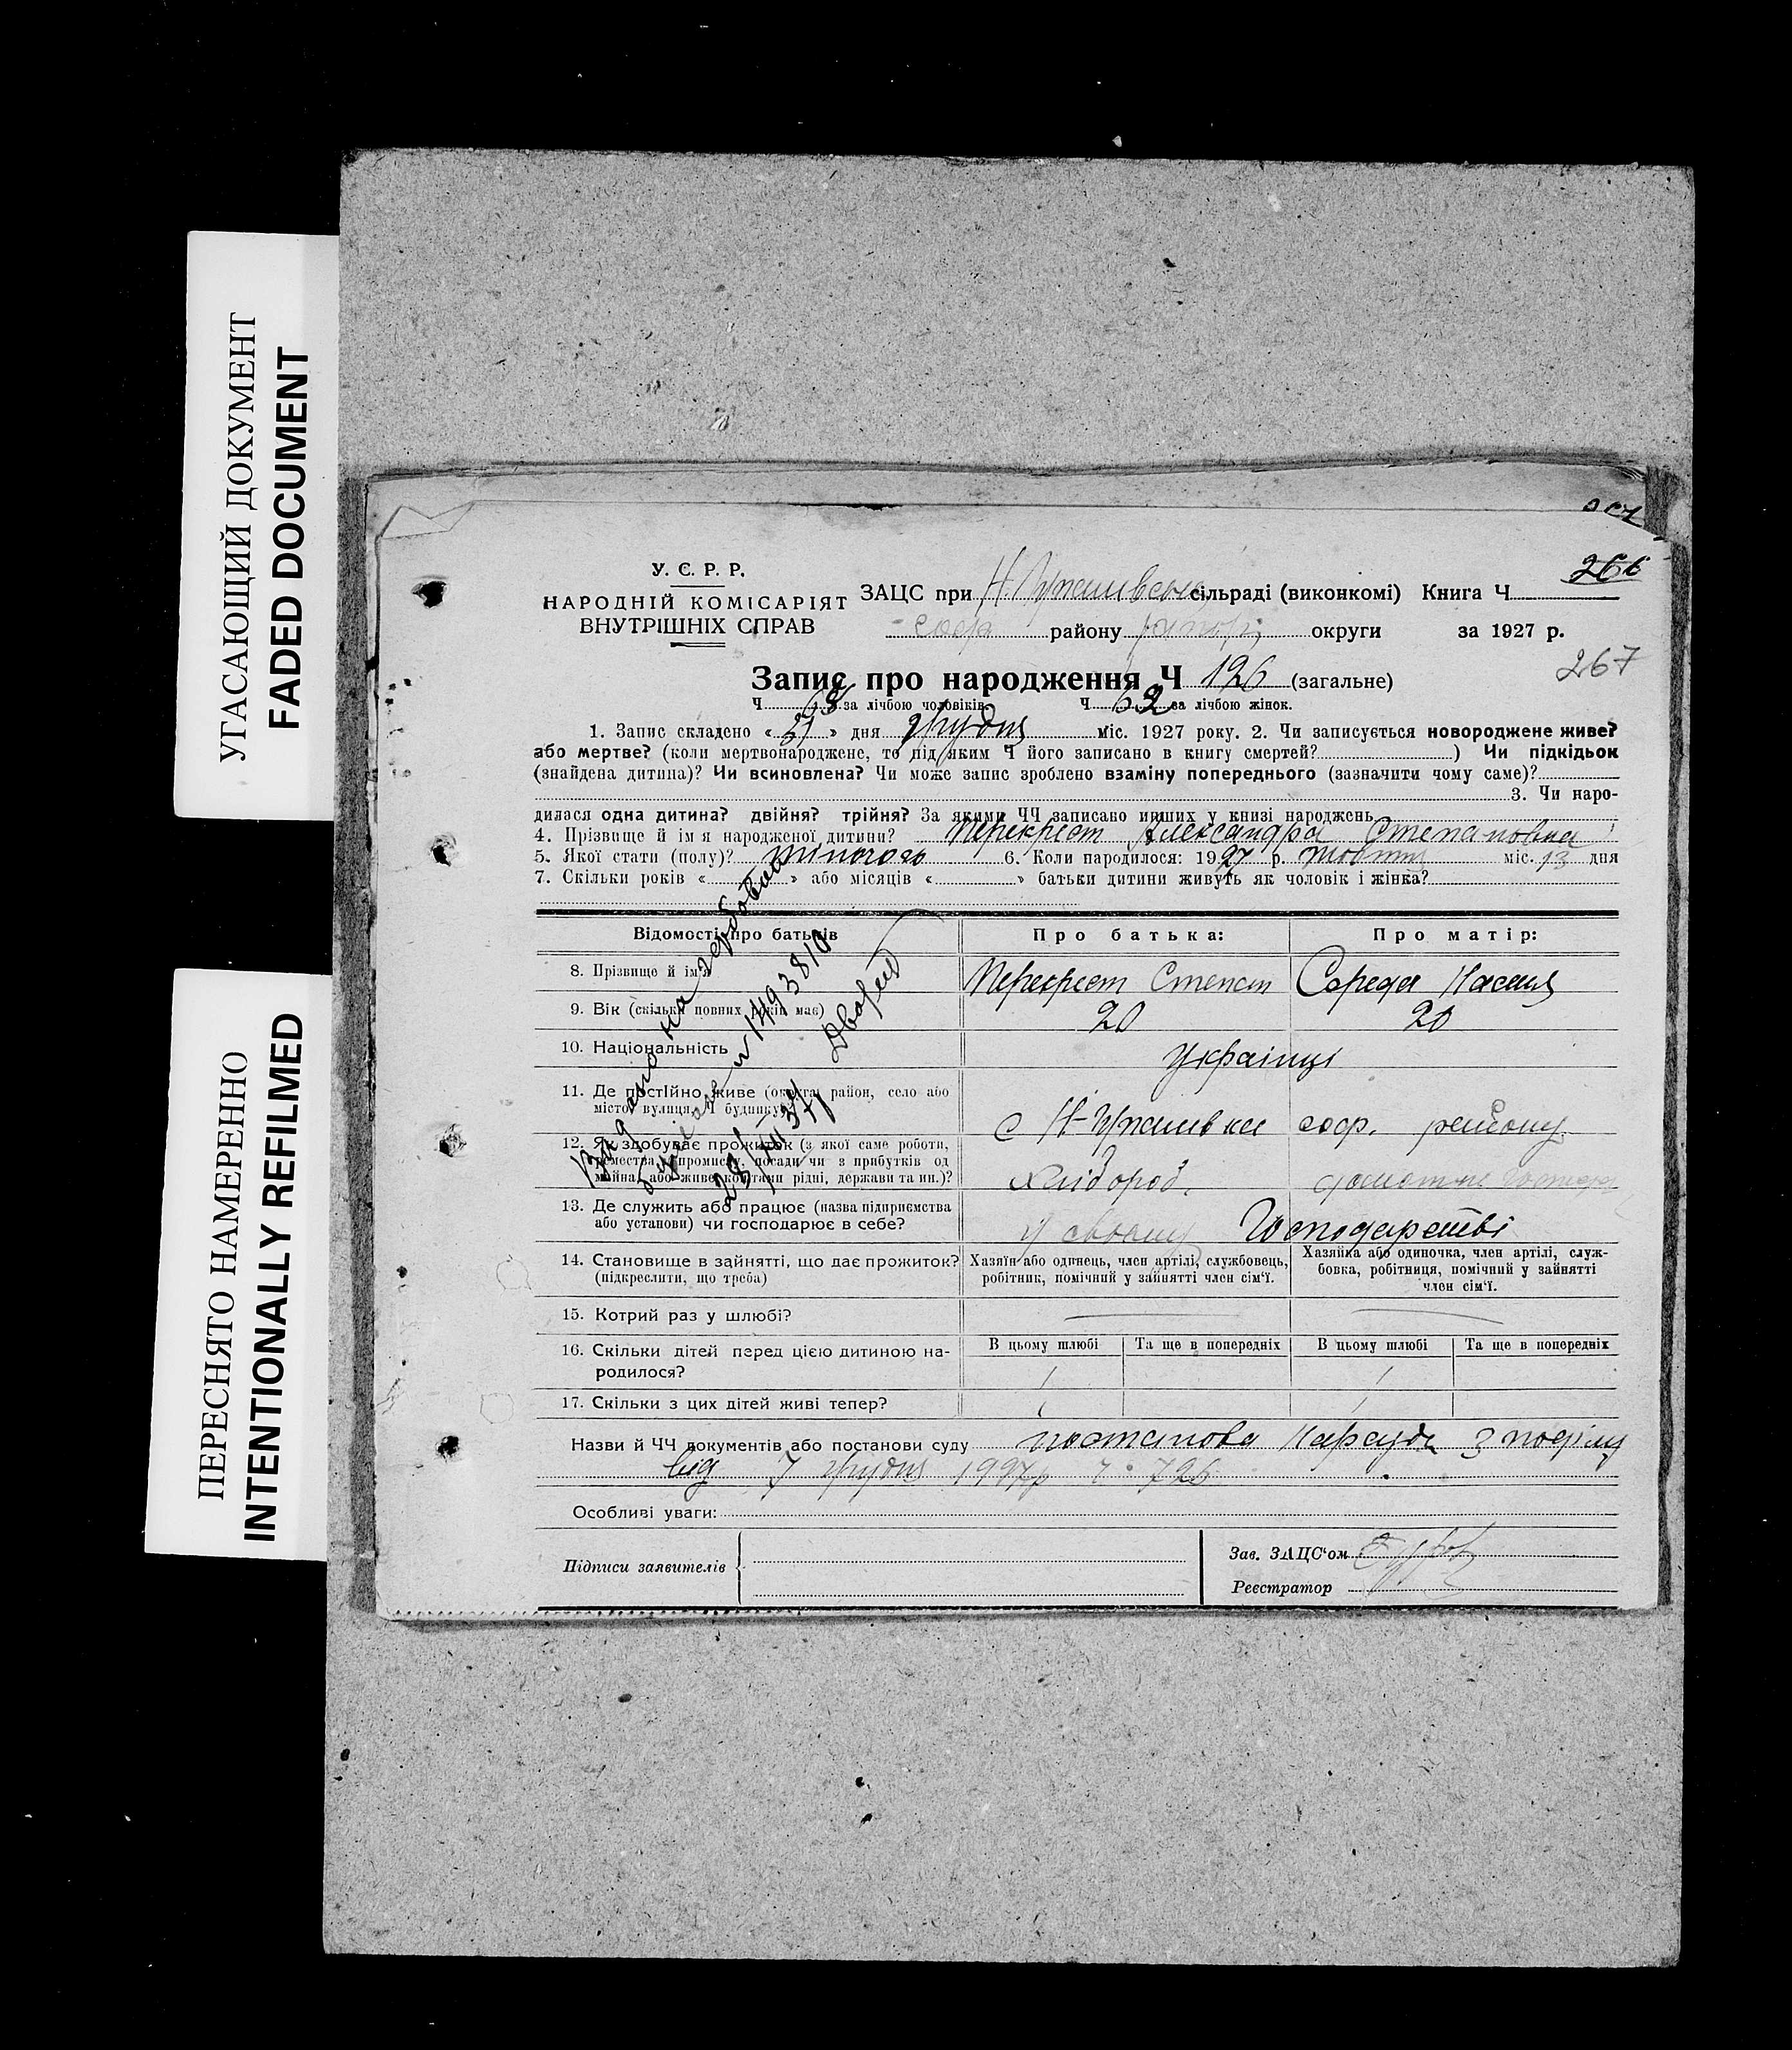 УГАСАЮЩИЙ ДОКУМЕНТ
FADED DOCUMENT
ПЕРЕСНЯТО НАМЕРЕННО
INTENTIONALLY REFILMED
266
267
У. Є. Р. Р.
НАРОДНІЙ КОМІСАРІЯТ
ВНУТРІШНІХ СПРАВ
ЗАЦС при сільраді (виконкомі) Книга Ч
соф району округи за 1927 р.
Запис про народження Ч 126 (загальне)
Ч за лічбою чоловіків Ч 62 за лічбою жінок.
1. Запис складено « » дня грудня міс. 1927 року. 2. Чи записується новороджене живе?
або мертве? (коли мертвонароджене, то під яким Ч його записано в книгу смертей? ) Чи підкідьок
(знайдена дитина)? Чи всиновлена? Чи може запис зроблено взаміну попереднього (зазначити чому саме)?
3. Чи наро-
дилася одна дитина? двійня? трійня? За якими ЧЧ записано инших у книзі народжень
4. Прізвище й ім'я народженої дитини? Перекрест Александра Степановна
5. Якої стати (полу)? жіночого 6. Коли народилося: 1927 р. жовтня міс. 13 дня
7. Скільки років « » або місяців « » батьки дитини живуть як чоловік і жінка?
Відомості про батьків Про батька: Про матір:
8. Прізвище й ім'я Перекрест Степан Середа Насеня
9. Вік (скільки повних років має) 20 20
10. Національність Українці
11. Де постійно живе (округа, район, село або
місто, вулиця, Ч будинку) с соф. району
12. Як здобуває прожиток (з якої саме роботи,
ремества, промислу, посади чи з прибутків од
майна, або живе коштами рідні, держави та ин.)? Хлібороб.
13. Де служить або працює (назва підприємства
або установи) чи господарює в себе? У своему Господарстві
14. Становище в зайнятті, що дає прожиток?
(підкреслити, що треба)
Хазяїн або одинець, член артілі, службовець,
робітник, помічний у зайнятті член сім'ї.
Хазяйка або одиночка, член артілі, служ-
бовка, робітниця, помічний у зайнятті
член сім'ї.
15. Котрий раз у шлюбі?
16. Скільки дітей перед цією дитиною на-
родилося?
В цьому шлюбі Та ще в попередніх В цьому шлюбі Та ще в попередніх
17. Скільки з цих дітей живі тепер?
Видано на гербовой
бумаге 1493810
Назви й ЧЧ документів або постанови суду постанова Нарсуда
від 7 грудня 1927р ч. 726
Особливі уваги:
Підписи заявителів
Зав. ЗАЦС'ом
Реєстратор